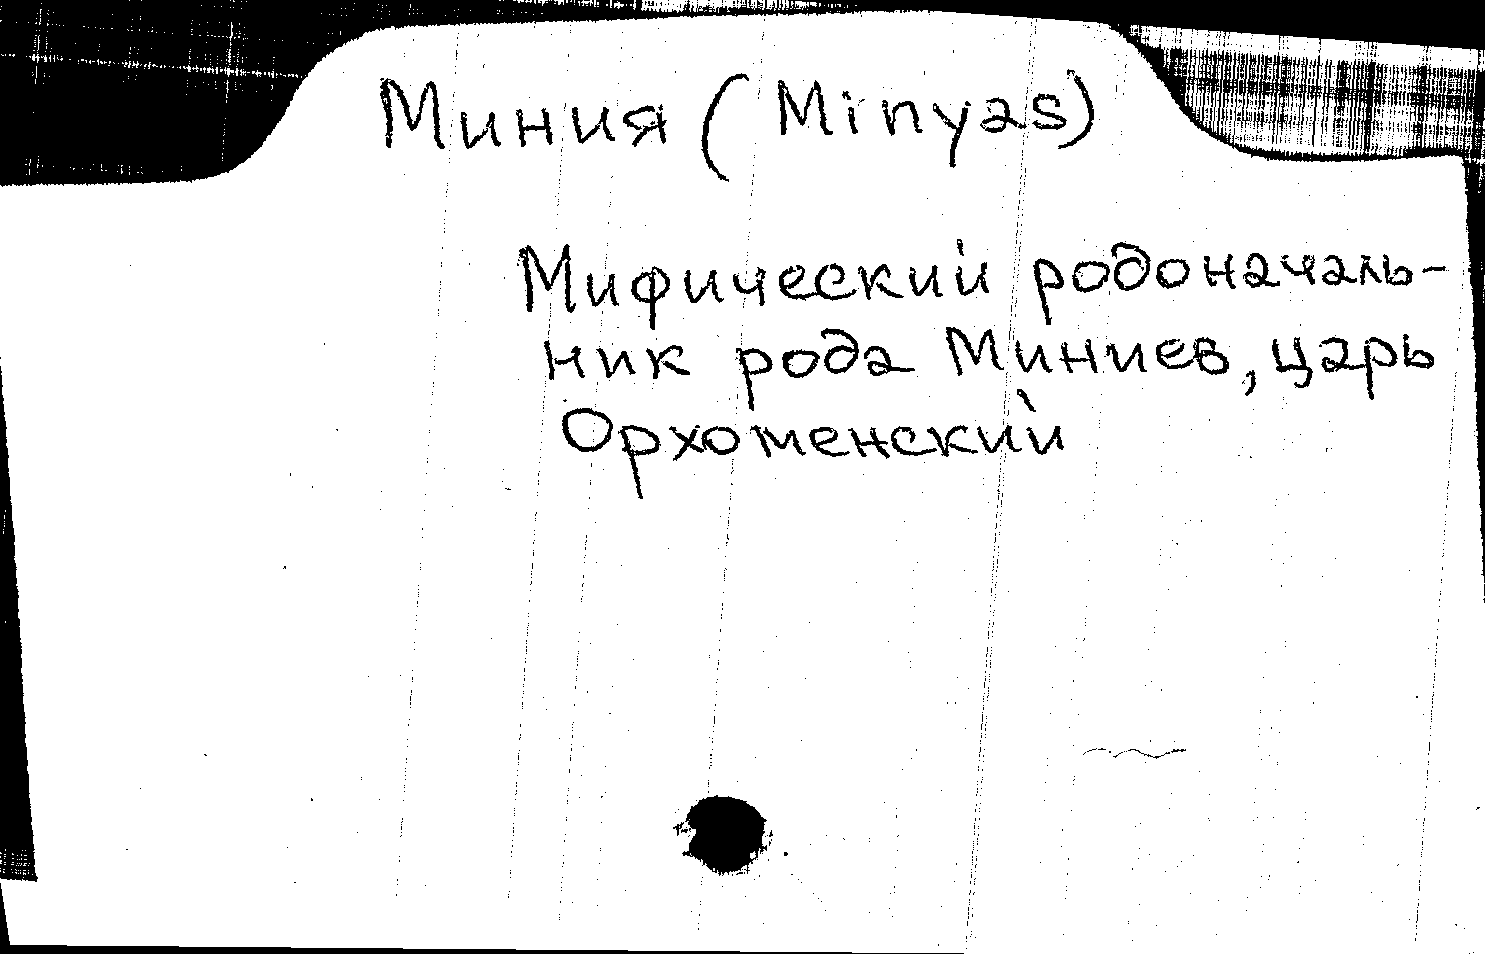 Миния (Minyas)
Мифический родоначаль-
ник рода Миниев, царь
Орхоменский